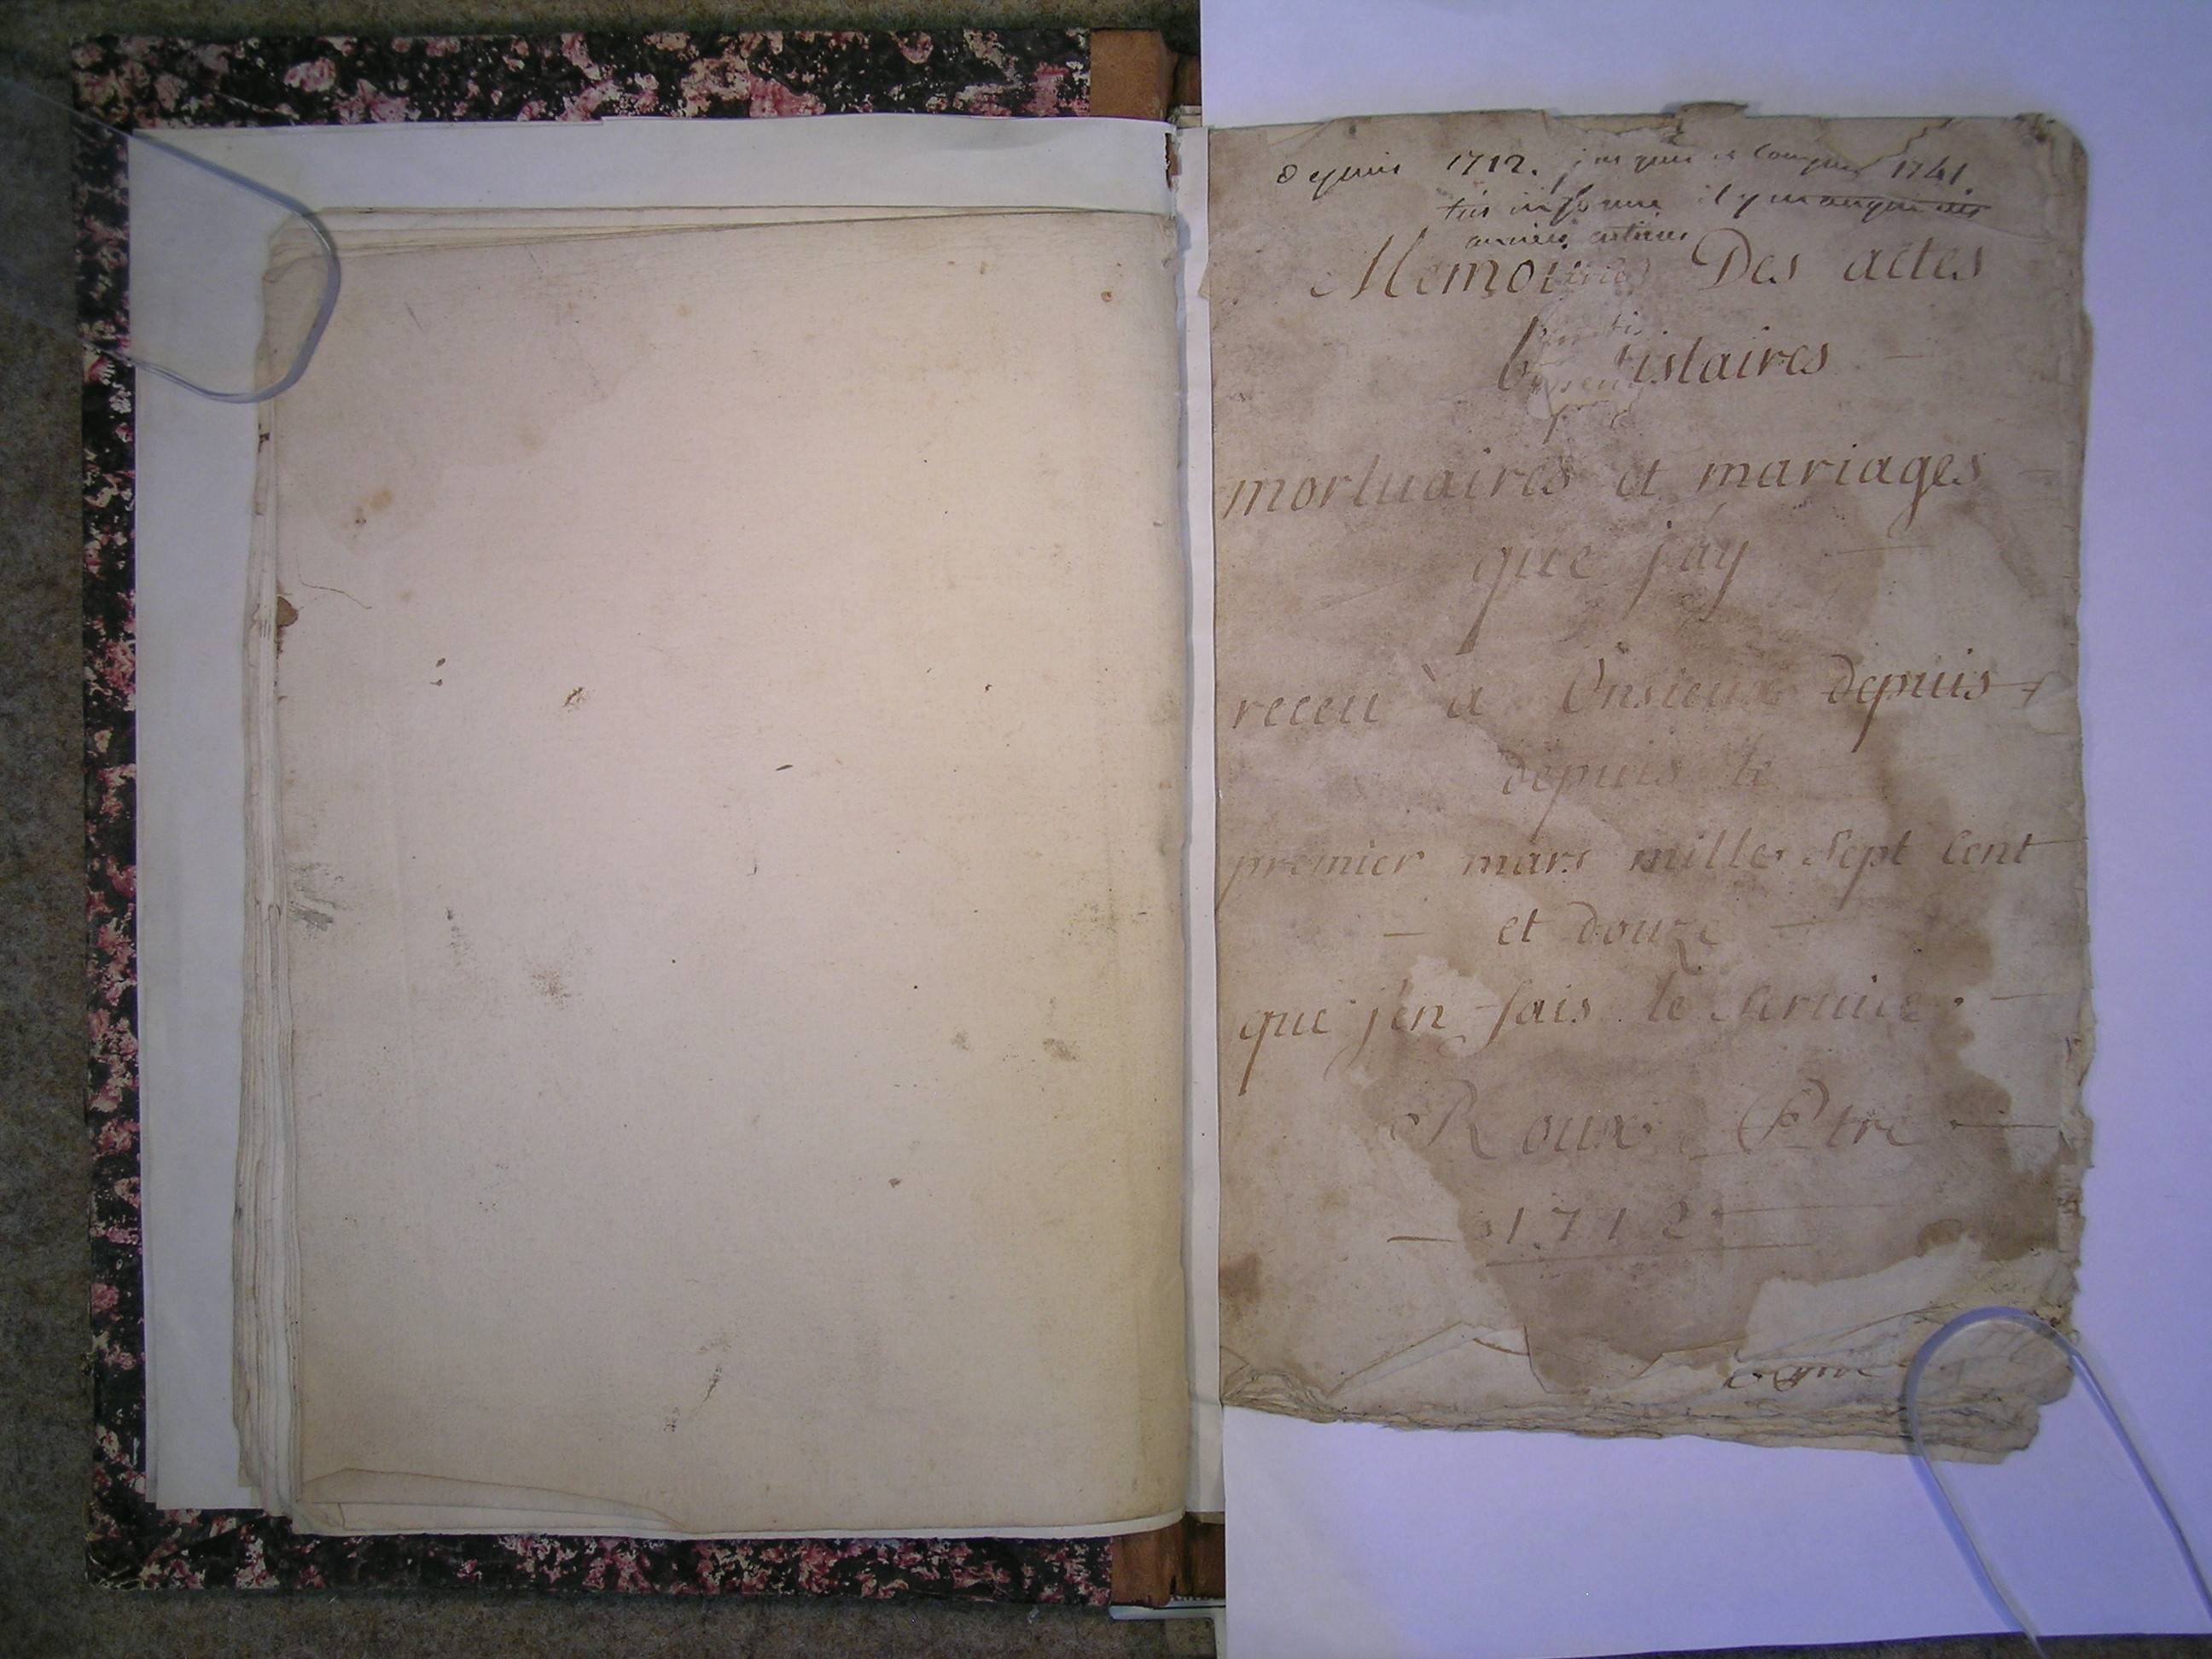 depuis 1712. jusques et compris 1741.
tres informe il y manque des
années entieres
Memoire Des actes
b tistaires
mortuaires et mariages
que j'ay
receu à Onsieux depuis
depuis le
premier mars mille Sept Cent
et douze
que j'en fais le Service.
Roux Ptre
1712